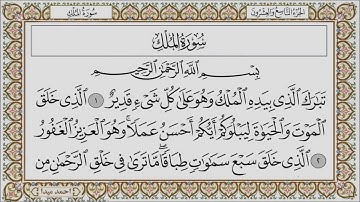 الجزء التاسع والعشرون
سورة الملك
سُورَةُ المُلْكِ
بِسْمِ اللَّهِ الرَّحْمَٰنِ الرَّحِيمِ
تَبَٰرَكَ الَّذِي بِيَدِهِ الْمُلْكُ وَهُوَ عَلَىٰ كُلِّ شَيْءٍ قَدِيرٌ ١ الَّذِي خَلَقَ
الْمَوْتَ وَالْحَيَوٰةَ لِيَبْلُوَكُمْ أَيُّكُمْ أَحْسَنُ عَمَلًا ۚ وَهُوَ الْعَزِيزُ الْغَفُورُ
٢ الَّذِي خَلَقَ سَبْعَ سَمَٰوَٰتٍ طِبَاقًا ۖ مَّا تَرَىٰ فِي خَلْقِ الرَّحْمَٰنِ مِن
احمد ميدا